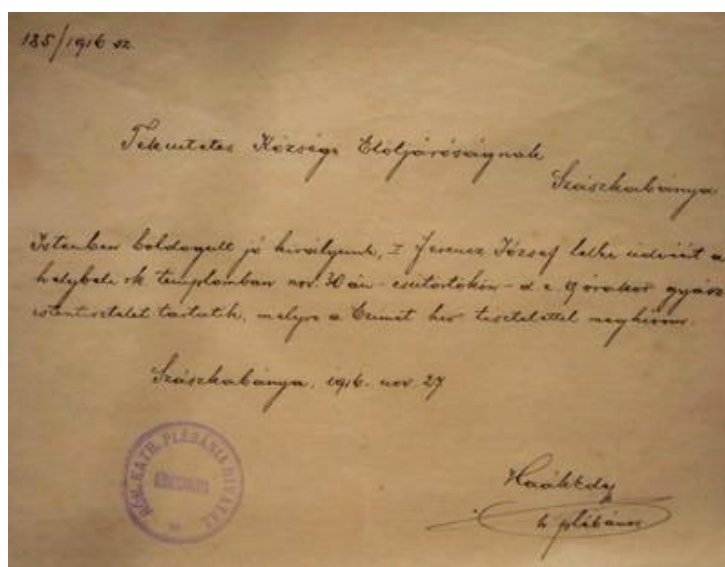 185/1916 sz.
Tekintetes Községi Elöljáróságnak
Szászkabánya
Istenben boldogult jó királyunk, I Ferencz József lelke üdvéért a
helybeli rk templomban nov. 30 án - csütörtökön - d e 9 órakor gyász
istentisztelet tartatik, melyre a Czimet tisztelettel meghivom.
Szászkabánya, 1916. nov 27
RÓM. KATH. PLÉBÁNIA HIVATAL
h plébános